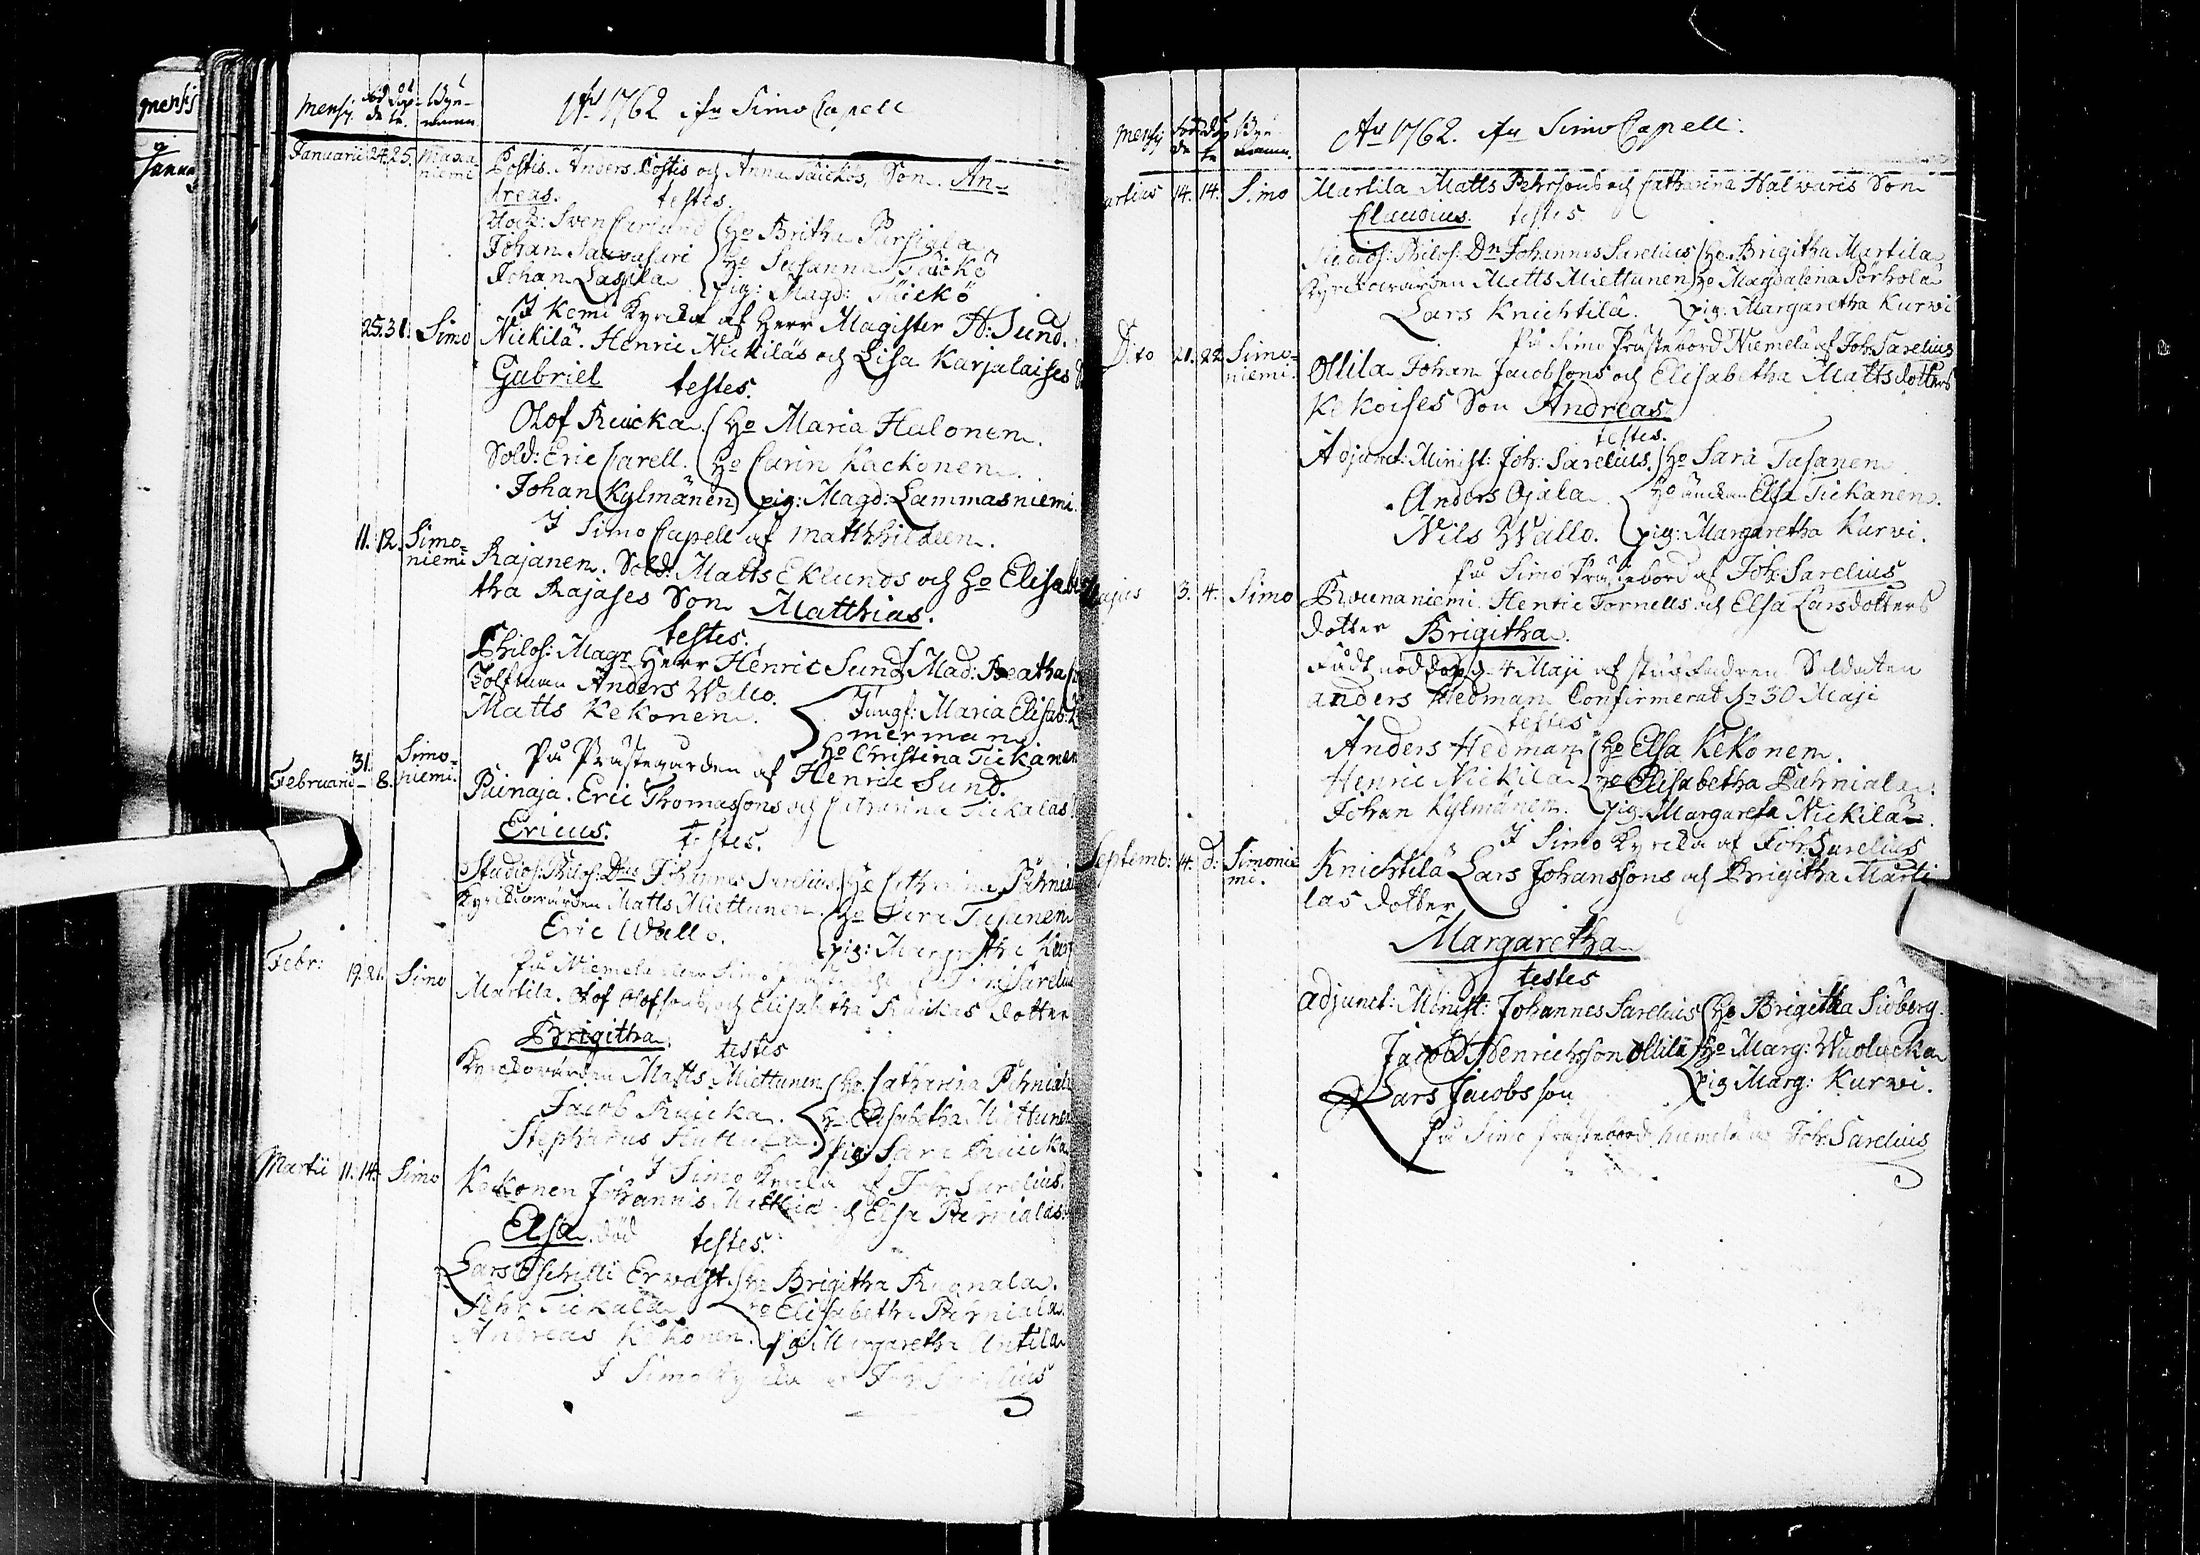 mensis
Mensis födde döpte Byn-namn Ao 1762 ifn Simo Capell
Januarii 24. 25. Maxaniemi Postis. Anders Postis och Anna Täickös Son An-
dreas. testes.
Sven Hho Britha Persiala
Johan Hho Susanna Täickö
Johan Laspila pig: Magd: Täickö
I Kemi Kyrcka af Herr Magister H: Sund.
25. 31. Simo Nickilä. Henric Nickiläs och Lisa Karjalaises
Gabriel testes.
Olof Ruicka Ho Maria Halonen.
Sold: Eric Carell. Ho Carin Kackonen
Johan Kylmänen pig: Magd: Lammasniemi
I Simo Capell af
11. 12. Simo-
niemi Rajanen. Sold: Matts Eklunds och Ho Elisabe
tha Rajases Son Matthias.
testes.
Philos: Magr Herr Henric Sund Mad: Beatha
Tolfman Anders Wallo.
Matts Kekonen. Jungf: Maria Elisab:
merman
Ho Christina Tickanen
På Prästegården af Henric Sund.
Februarii 31. 8. Simo-
niemi. Puinaja. Eric Thomassons och Catharina Tickalas
Ericus. testes.
Studios: Philos: Dnus Johannes Sarelius. Ho Catharina Pehnia
Kyrckowärden Matts Miettunen. Ho Sara Tusanen
Eric Wallo. pig: Margretha Kur
På Niemelä Simo Sarelius
Febr: 19. 21. Simo Martila. Olof Olofsons och Elisabetha Ruickas dotter
Brigitha. testes
Kyrckowärden Matts Miettunen Ho Catharina Pehniala
Jacob Ruicka. Ho Elisabetha Miettunen
Stephanus pig: Sara Ruicka
I Simo Kyrcka af Joh: Sarelius.
Martii 11. 14. Simo Kekonen Johannis Matthiae och Elsa Pehnialas
Elsa. död testes.
Lars Ervast. Ho Brigitha
Pehr Tickala Ho Elisabetha Pehniala
Andreas Kekonen. pig Margaretha Antila
I Simo Kyrcka af Joh: Sarelius
Mensis födde döpte Byn namn. Ao 1762. ifn Simo Capell.
artius 14. 14. Simo Martila Matts Pehrsons och Catharina Halvaris Son
Claudius. testes
Studios: Philos: Dn Johannes Sarelius Ho Brigitha Martila
Kyrckowärden Matts Miettunen Ho Magdalena Pörhola
Lars Knichtilä. pig: Margaretha Kurwi
På Simo Prästebord Niemelä af Joh: Sarelius
Dito 21. 22. Simo-
niemi. Ollila Johan Jacobsons och Elisabetha Mattsdotters
Kekoises Son Andreas.
testes.
Adjunct: Minist: Joh: Sarelius. Ho Sara Tusanen
Anders Ojala Ho Änckan Elsa Tickanen.
Nils Wallo. pig: Margaretha Kurvi.
På Simo Prästebord af Joh: Sarelius
Majus 3. 4. Simo Rounaniemi. Henric Tornells och Elsa Larsdotters
dotter Brigitha.
Fådt nöddop d. 4 Maji af Soldaten
anders Hedman Confirmerat d. 30 Maji
testes
Anders Hedman Ho Elsa Kekonen.
Henric Nickilä Ho Elisabetha Pehniala.
Johan Kylmänen. pig: Margareta Nickilä.
I Simo Kyrcka af Joh: Sarelius
Septemb: 14. d: Simonie
mi. Knichtilä Lars Johanssons och Brigitha Marti
las dotter
Margaretha
testes
adjunct: Minist: Johannes Sarelius Ho Brigitha Siöberg.
Jacob Henrichsson Ollila Ho Marg: Wuolucka
Lars Jacobsson pig Marg: Kurwi.
På Simo Prästebord Niemelä af Joh: Sarelius